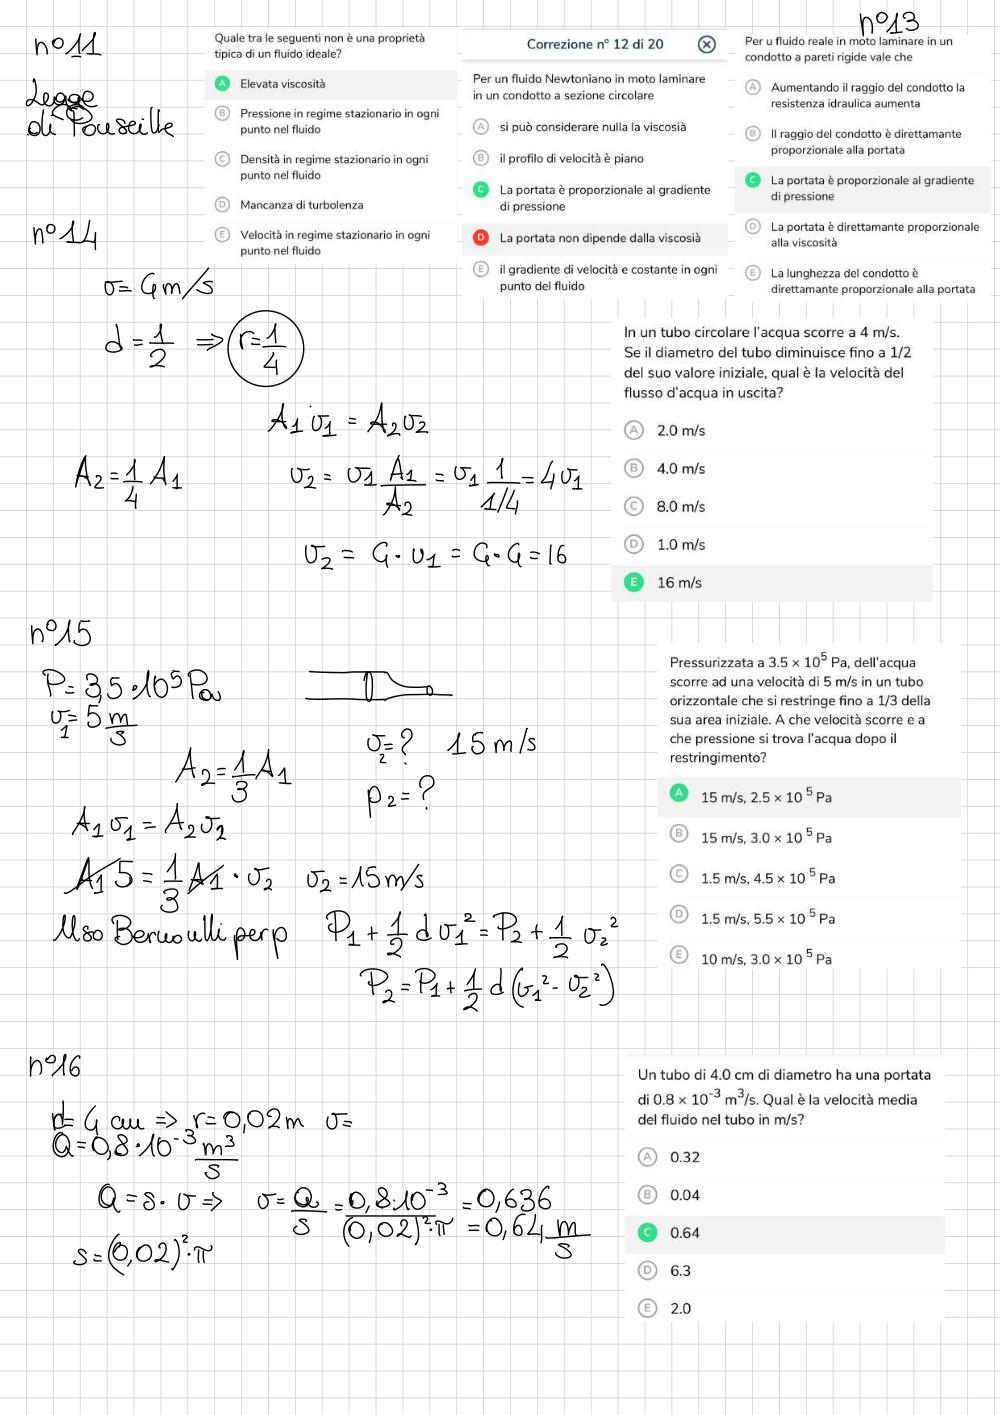 n°11
Legge
di Pouseille
Quale tra le seguenti non è una proprietà
tipica di un fluido ideale?
A Elevata viscosità
B Pressione in regime stazionario in ogni
punto nel fluido
C Densità in regime stazionario in ogni
punto nel fluido
D Mancanza di turbolenza
E Velocità in regime stazionario in ogni
punto nel fluido
Correzione n° 12 di 20
Per un fluido Newtoniano in moto laminare
in un condotto a sezione circolare
A si può considerare nulla la viscosià
B il profilo di velocità è piano
C La portata è proporzionale al gradiente
di pressione
D La portata non dipende dalla viscosià
E il gradiente di velocità e costante in ogni
punto del fluido
n°13
Per u fluido reale in moto laminare in un
condotto a pareti rigide vale che
A Aumentando il raggio del condotto la
resistenza idraulica aumenta
B Il raggio del condotto è direttamante
proporzionale alla portata
C La portata è proporzionale al gradiente
di pressione
D La portata è direttamante proporzionale
alla viscosità
E La lunghezza del condotto è
direttamante proporzionale alla portata
n°14
v = 4 m/s
d = 1/2 => r = 1/4
A1 v1 = A2 v2
A2 = 1/4 A1
v2 = v1 A1/A2 = v1 1/(1/4) = 4v1
v2 = 4 · v1 = 4 · 4 = 16
In un tubo circolare l'acqua scorre a 4 m/s.
Se il diametro del tubo diminuisce fino a 1/2
del suo valore iniziale, qual è la velocità del
flusso d'acqua in uscita?
A 2.0 m/s
B 4.0 m/s
C 8.0 m/s
D 1.0 m/s
E 16 m/s
n°15
P = 3,5 · 10⁵ Pa
v1 = 5 m/s
v2 = ? 15 m/s
A2 = 1/3 A1
p2 = ?
A1 v1 = A2 v2
A1 5 = 1/3 A1 · v2 v2 = 15 m/s
Uso Bernoulli per p P1 + 1/2 d v1² = P2 + 1/2 v2²
P2 = P1 + 1/2 d (v1² - v2²)
Pressurizzata a 3.5 × 10⁵ Pa, dell'acqua
scorre ad una velocità di 5 m/s in un tubo
orizzontale che si restringe fino a 1/3 della
sua area iniziale. A che velocità scorre e a
che pressione si trova l'acqua dopo il
restringimento?
A 15 m/s, 2.5 × 10⁵ Pa
B 15 m/s, 3.0 × 10⁵ Pa
C 1.5 m/s, 4.5 × 10⁵ Pa
D 1.5 m/s, 5.5 × 10⁵ Pa
E 10 m/s, 3.0 × 10⁵ Pa
n°16
d = 4 cm => r = 0,02 m v =
Q = 0,8 · 10⁻³ m³/s
Q = s · v => v = Q/s = 0,8·10⁻³/(0,02)²·π = 0,636
= 0,64 m/s
s = (0,02)² · π
Un tubo di 4.0 cm di diametro ha una portata
di 0.8 × 10⁻³ m³/s. Qual è la velocità media
del fluido nel tubo in m/s?
A 0.32
B 0.04
C 0.64
D 6.3
E 2.0